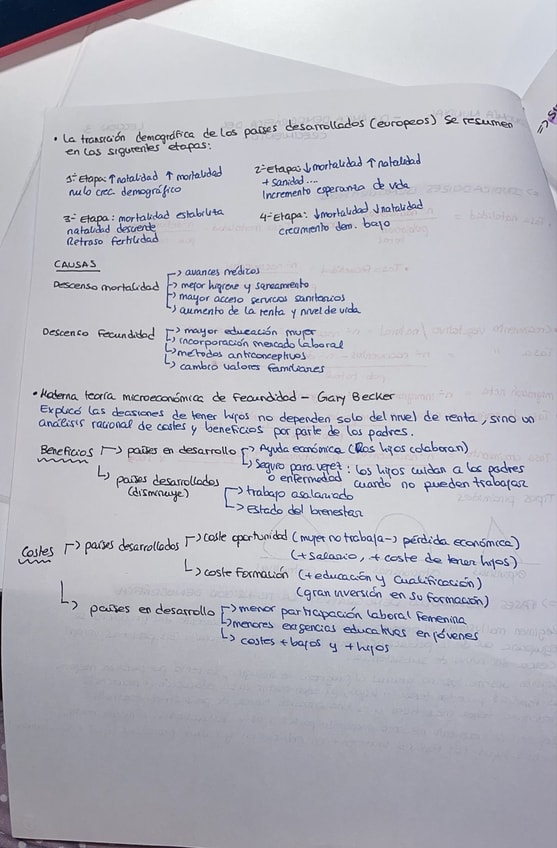 • La transición demográfica de los países desarrollados (europeos) se resumen
en las siguientes etapas:
1ª etapa: ↑natalidad ↑ mortalidad
nulo crec. demográfico
2ª etapa: ↓mortalidad ↑ natalidad
+ sanidad...
Incremento esperanza de vida
3ª etapa: mortalidad estabiliza
natalidad desciende
Retraso fertilidad
4ª etapa: ↓mortalidad ↓natalidad
crecimiento dem. bajo
CAUSAS
Descenso mortalidad
→ avances médicos
→ mejor higiene y saneamiento
→ mayor acceso servicios sanitarios
→ aumento de la renta y nivel de vida
Descenso fecundidad
→ mayor educación mujer
→ incorporación mercado laboral
→ métodos anticonceptivos
→ cambio valores familiares
• Materna teoría microeconómica de fecundidad - Gary Becker
Explicó las decisiones de tener hijos no dependen solo del nivel de renta, sino un
análisis racional de costes y beneficios por parte de los padres.
Beneficios → países en desarrollo → Ayuda económica (los hijos colaboran)
→ Seguro para vejez: los hijos cuidan a los padres
o enfermedad cuando no pueden trabajar
→ países desarrollados
(disminuye)
→ trabajo asalariado
→ Estado del bienestar
Costes → países desarrollados → coste oportunidad (mujer no trabaja → pérdida económica)
(+ salario, + coste de tener hijos)
→ coste formación (+ educación y cualificación)
(gran inversión en su formación)
→ países en desarrollo → menor participación laboral femenina
→ menores exigencias educativas en jóvenes
→ costes + bajos y + hijos